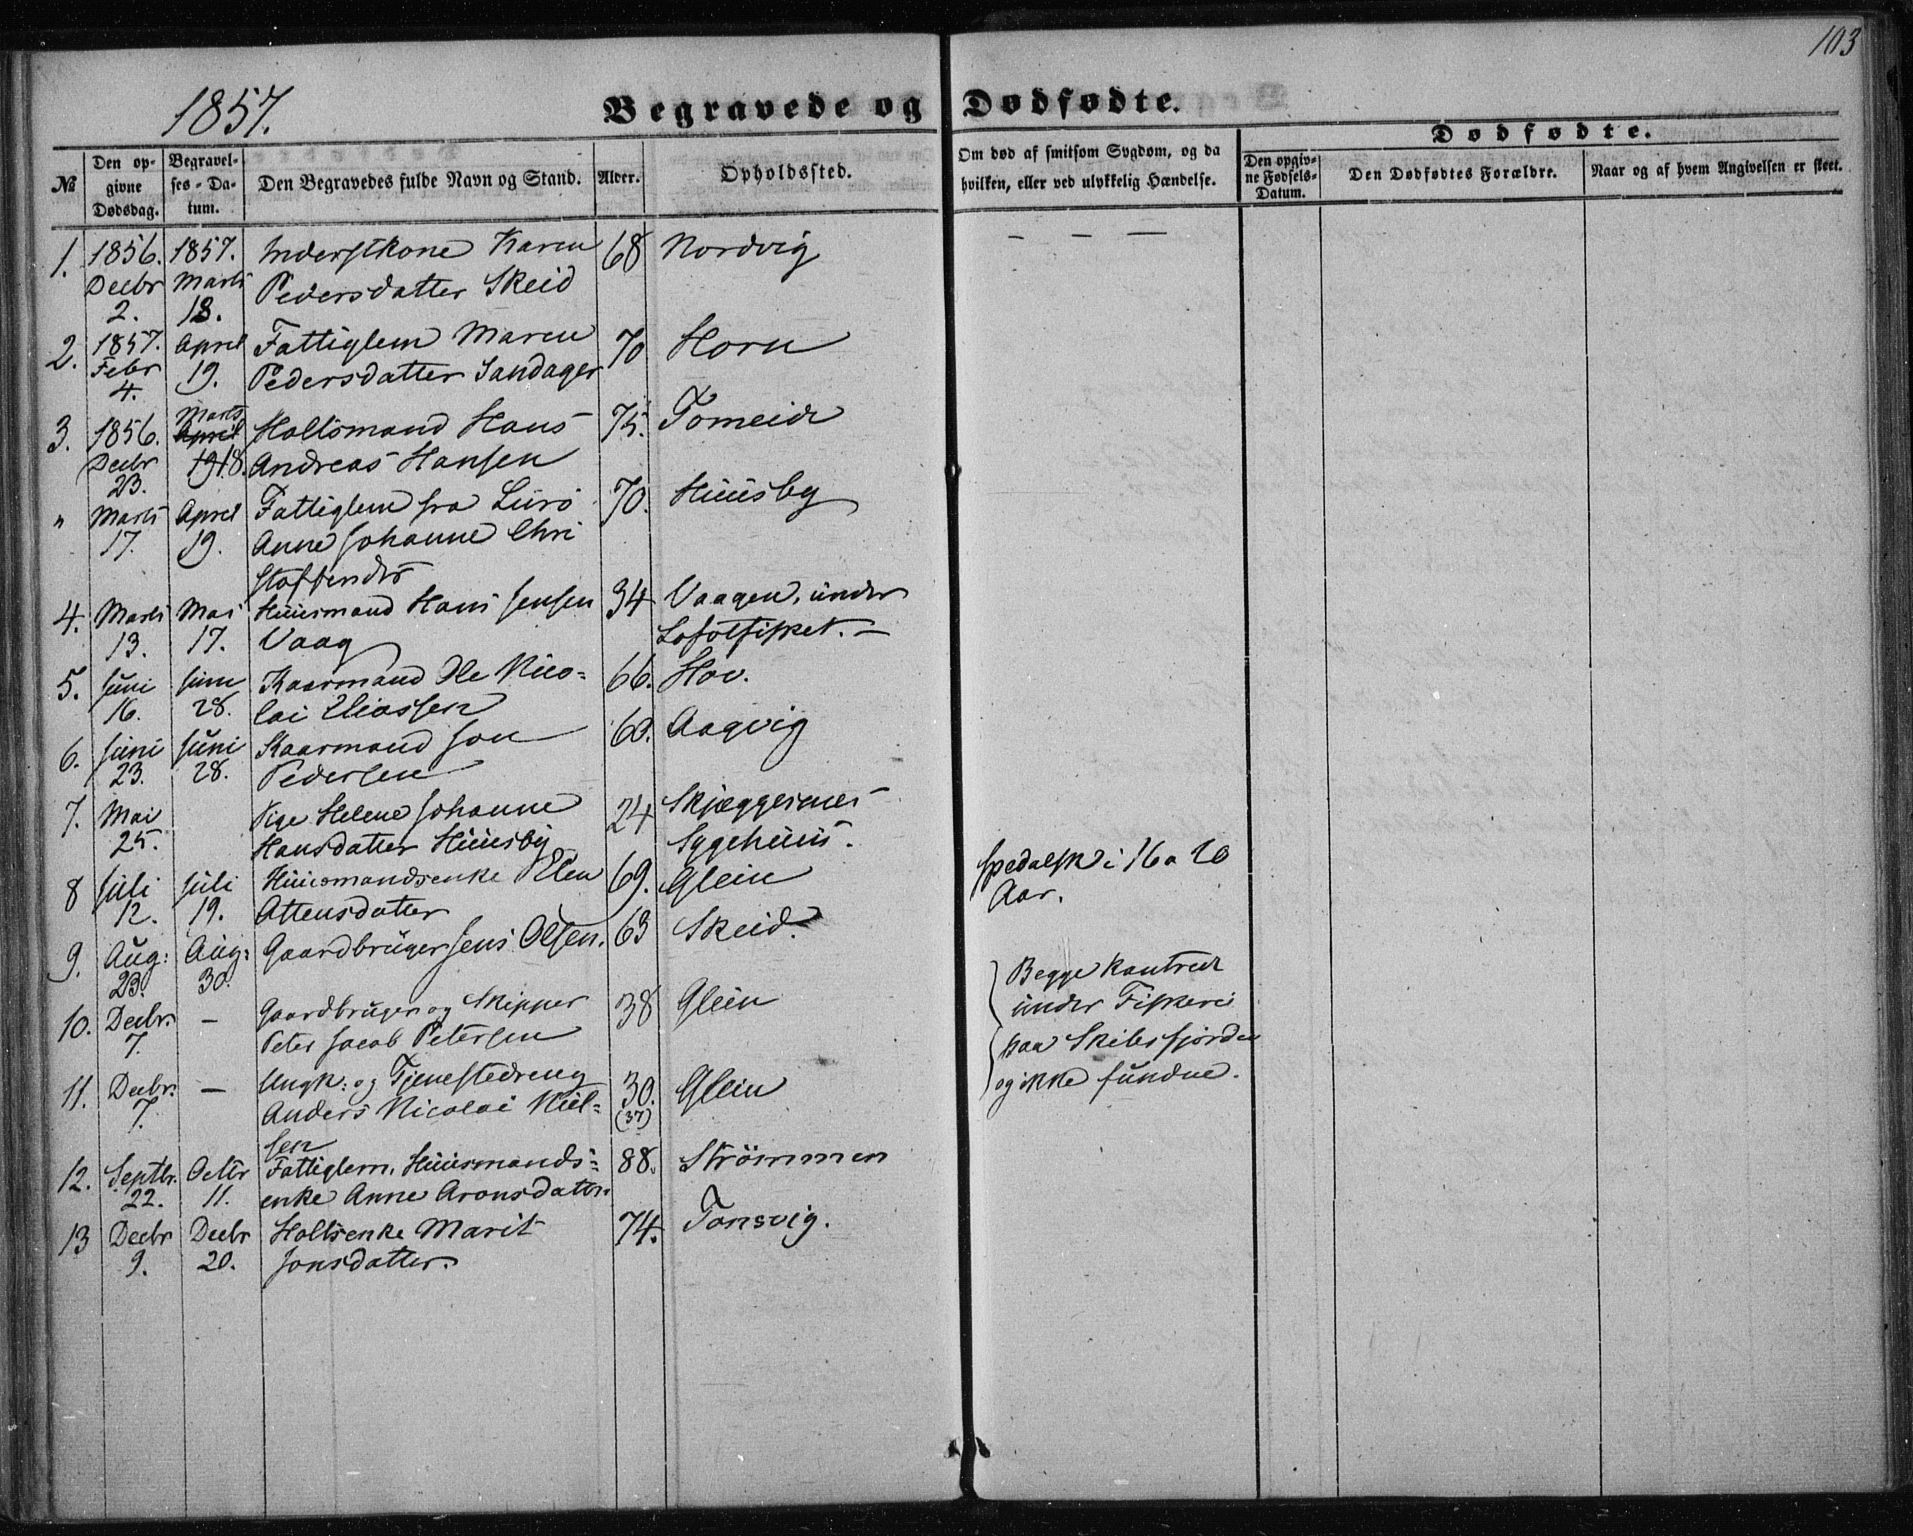 103
1857.
Begravede og Dødfødte.
Dødfødte.
№
Den op-
givne
Dødsdag.
Begravel-
ses-Da-
tum.
Den Begravedes fulde Navn og Stand.
Alder.
Opholdssted.
Om død af smitsom Sygdom, og da
hvilken, eller ved ulykkelig Hændelse.
Den opgiv-
ne Fødsels-
Datum.
Den Dødfødtes Forældre.
Naar og af hvem Angivelsen er skeet.
1. 1856. 1857. Inderstkone Karen 68 Nordvig — — —
Decbr Marts Pedersdatter Skeid
2. 18.
2. 1857. April Fattiglem Maren 70 Horn
Febr 19. Pedersdatter Sandager
4.
3. 1856. Marts April Holtsmand Hans 75. Tomeide
Decbr 19 18. Andreas Hansen
23.
" Marts April Fattiglem fra Lurø 70. Huusby
17. 19. Anne Johanne Chri
stoffersdtr
4. Marts Mai Huusmand Hans Jensen 34 Vaagen, under
13. 17. Vaag Lofotfisket. —
5. Juni Juni Kaarmand Ole Nico- 66. Hov.
16. 28. lai Eliassen
6. Juni Juni Kaarmand Jon 60. Aagvig
23. 28. Pedersen
7. Mai Pige Helene Johanne 24 Skjæggesnes
25. Hansdatter Huusby Sygehuus.
8 Juli Juli Huusmandsenke Elen 69. Glein spedalsk i 16 a 20
12. 19. Attensdatter Aar.
9. Aug: Aug: Gaardbruger Jens Olsen. 63 Skeid.
23. 30.
10. Decbr. — Gaardbruger og Skipper 38 Glein
7. Peter Jacob Petersen
11. Decbr. — Ungk: og Tjenestedreng 30. Glein
7. Anders Nicolai Niel- (37)
sen
Begge kantrede
under Fiskeri
paa Skibsfjorden
og ikke fundne.
12. Septbr. Octbr Fattiglem, Huusmands- 88. Strömmen
22. 11. enke Anne Aronsdatter
13 Decbr Decbr Holtsenke Marit 74. Tonsvig.
9. 20. Jonsdatter.